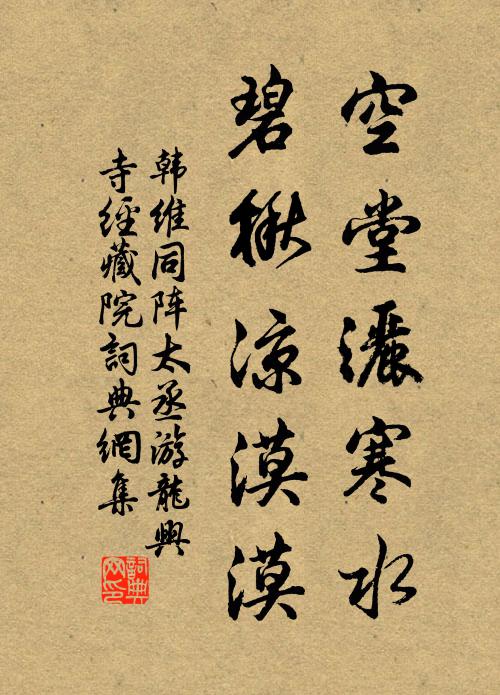 空堂灑寒水
碧楸凉漠漠
韩维同阵太丞游龍興
寺經藏院詞典網集
詞典
网印